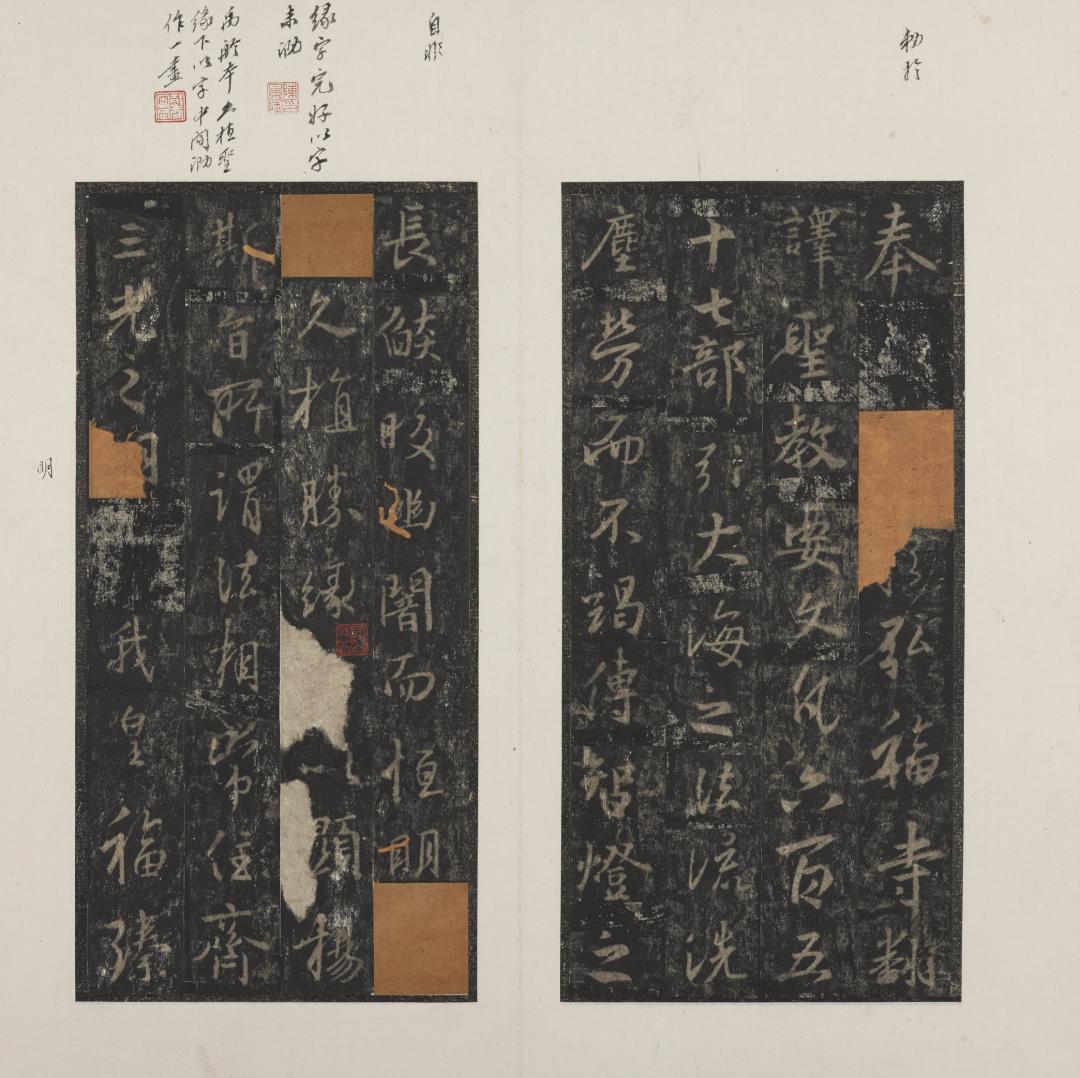 勅於
自非
緣字完好以字
未泐
禹舲本久植聖
緣下以字中間泐
作一畫
奉弘福寺翻
譯聖教要文凡六百五
十七部引大海之法流洗
塵勞而不竭傳智燈之
長燄皎幽闇而恒明
久植勝緣以顯揚
斯旨所謂法相常住齊
三光之明我皇福臻
明